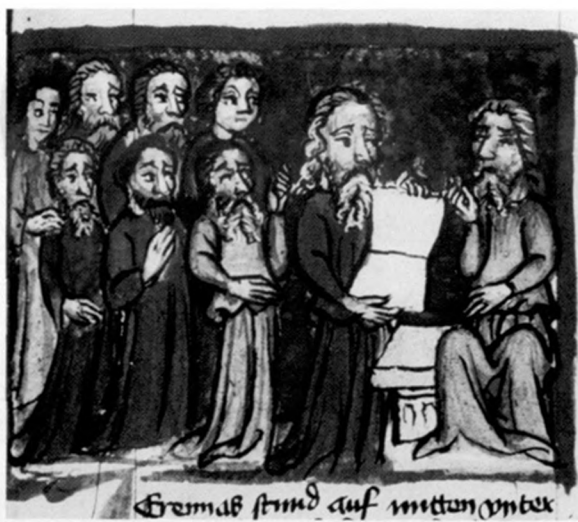 Eremias stund auf mitten vnter